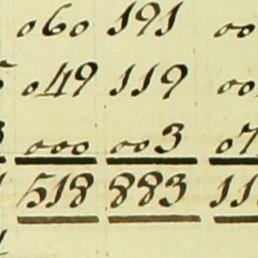 060 191 00
049 119 00
000 003 07
518 883 11